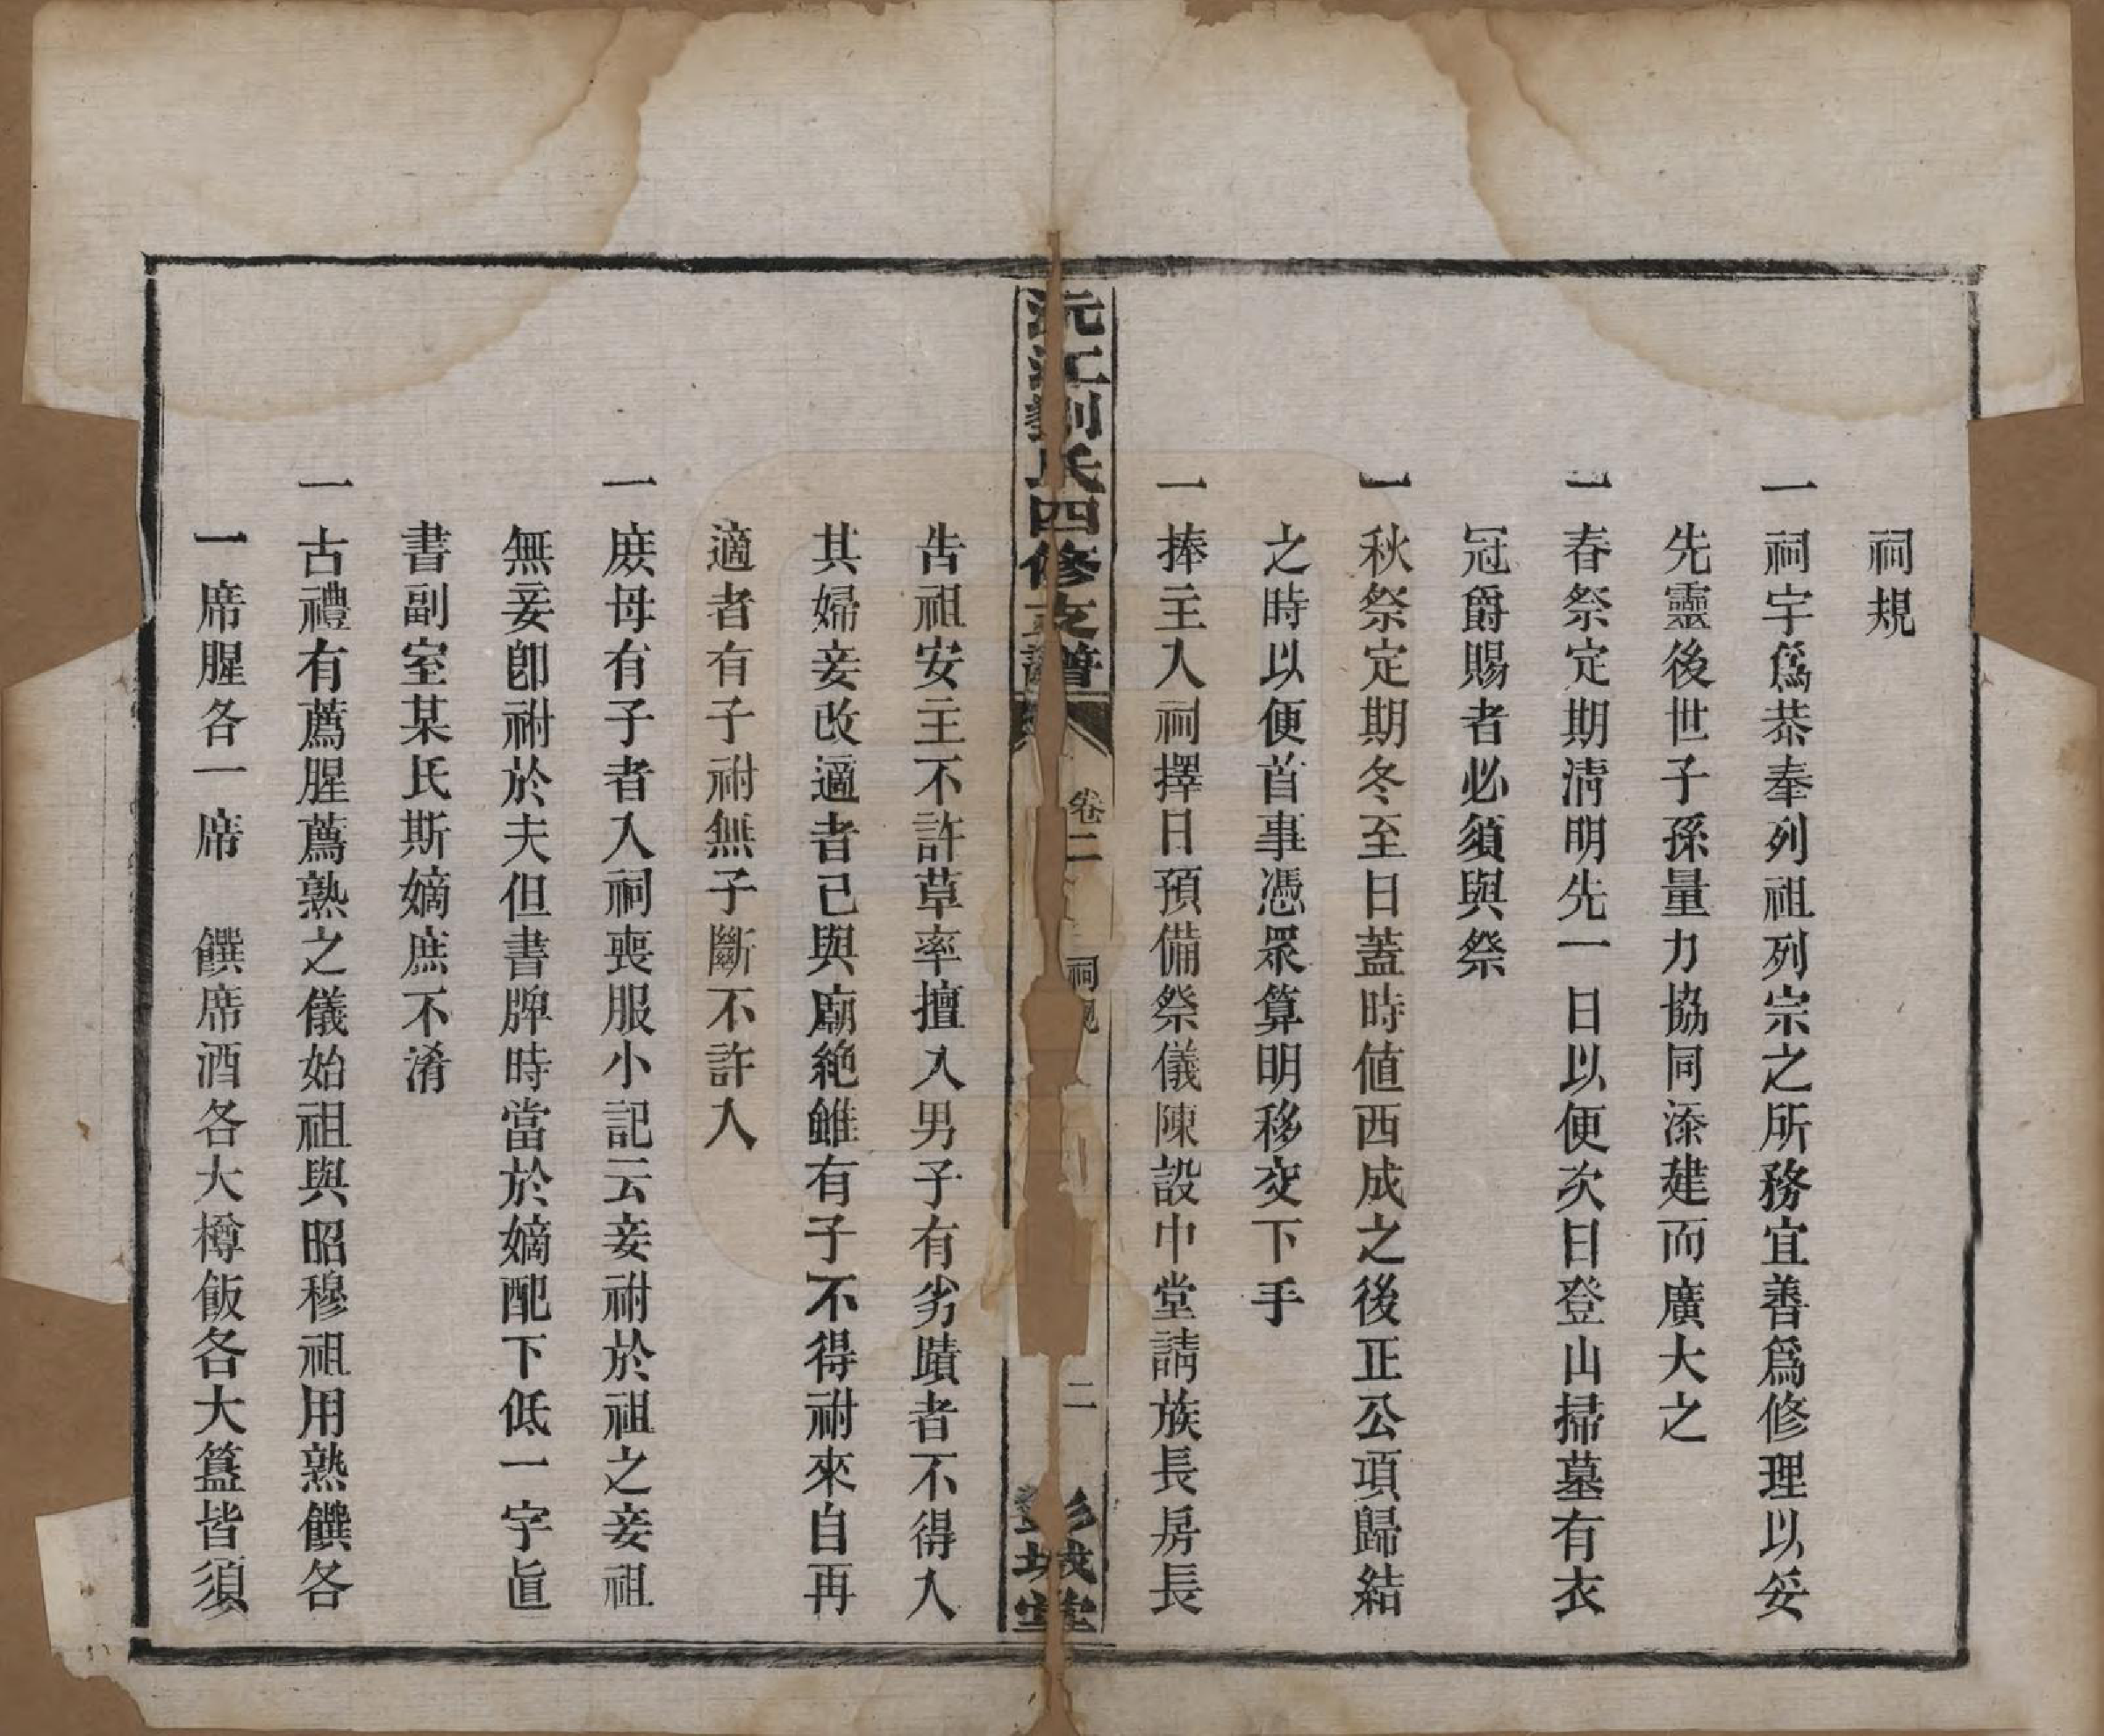 祠規
一祠宇爲恭奉列祖列宗之所務宜善爲修理以妥
先靈後世子孫量力協同添建而廣大之
一春祭定期淸明先一日以便次日登山掃墓有衣
冠爵賜者必須與祭
一秋祭定期冬至日蓋時値西成之後正公項歸結
之時以便首事憑眾算明移交下手
一捧主入祠擇日預備祭儀陳設中堂請族長房長
沅江劉氏四修支譜
卷二
祠規
二
彭城堂
告祖安主不許草率擅入男子有劣蹟者不得入
其婦妾改適者已與廟絶雖有子不得祔來自再
適者有子祔無子斷不許入
一庶母有子者入祠喪服小記云妾祔於祖之妾祖
無妾卽祔於夫但書牌時當於嫡配下低一字直
書副室某氏斯嫡庶不淆
一古禮有薦腥薦熟之儀始祖與昭穆祖用熟饌各
一席腥各一席 饌席酒各大樽飯各大簋皆須